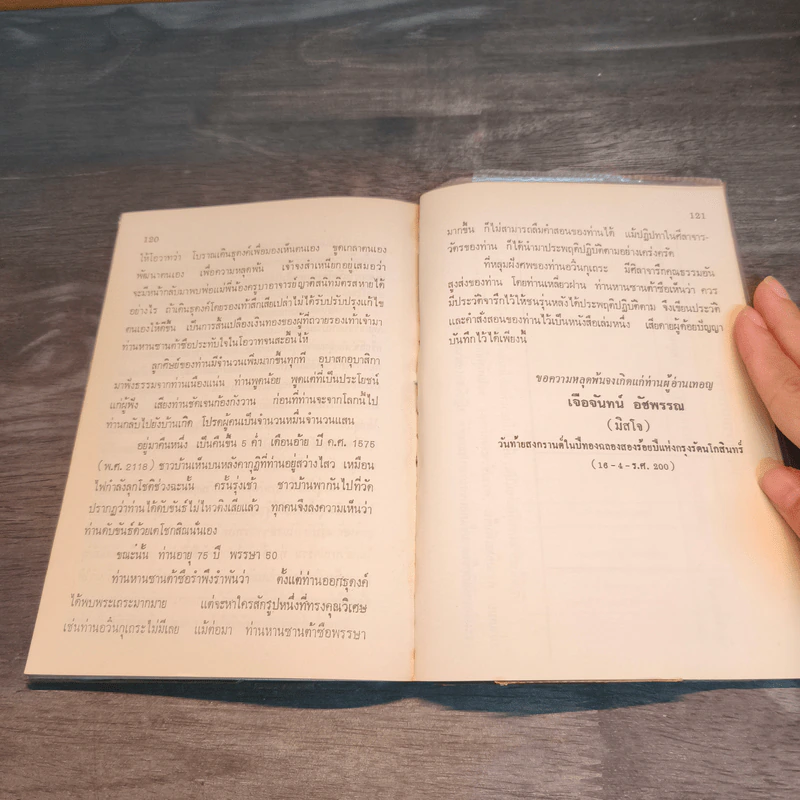 120
ให้โอวาทว่า โบราณเดินธุดงค์เพื่อมองเห็นตนเอง ขูดเกลาตนเอง
พัฒนาตนเอง เพื่อความหลุดพ้น เจ้าจงสำเหนียกอยู่เสมอว่า
จะมีหน้ากลับมาพบพ่อแม่พี่น้องครูบาอาจารย์ญาติสนิทมิตรสหายได้
อย่างไร ถ้าเดินธุดงค์โดยรองเท้าสึกเสียเปล่าไม่ได้รับปรับปรุงแก้ไข
ตนเองให้ดีขึ้น เป็นการสิ้นเปลืองเงินทองของผู้ที่ถวายรองเท้าเจ้ามา
ท่านหานซานต้าซือประทับใจในโอวาทจนสะอื้นไห้
ลูกศิษย์ของท่านมีจำนวนเพิ่มมากขึ้นทุกที อุบาสกอุบาสิกา
มาฟังธรรมจากท่านเนืองแน่น ท่านพูดน้อย พูดแต่ที่เป็นประโยชน์
แก่ผู้ฟัง เสียงท่านชัดเจนก้องกังวาน ก่อนที่ท่านจะจากโลกนี้ไป
ท่านกลับไปยังบ้านเกิด โปรดผู้คนเป็นจำนวนหมื่นจำนวนแสน
อยู่มาคืนหนึ่ง เป็นคืนขึ้น 5 ค่ำ เดือนอ้าย ปี ค.ศ. 1575
(พ.ศ. 2118) ชาวบ้านเห็นบนหลังคากุฏิที่ท่านอยู่สว่างไสว เหมือน
ไฟกำลังลุกโชติช่วงฉะนั้น ครั้นรุ่งเช้า ชาวบ้านพากันไปที่วัด
ปรากฏว่าท่านได้ดับขันธ์ไม่ไหวติงเสียแล้ว ทุกคนจึงลงความเห็นว่า
ท่านดับขันธ์ด้วยเตโชกสิณนั่นเอง
ขณะนั้น ท่านอายุ 75 ปี พรรษา 50
ท่านหานซานต้าซือรำพึงรำพันว่า ตั้งแต่ท่านออกธุดงค์
ได้พบพระเถระมากมาย แต่จะหาใครสักรูปหนึ่งที่ทรงคุณวิเศษ
เช่นท่านอวิ๋นกุเถระไม่มีเลย แม้ต่อมา ท่านหานซานต้าซือพรรษา
121
มากขึ้น ก็ไม่สามารถลืมคำสอนของท่านได้ แม้ปฏิปทาในศีลาจาร-
วัตรของท่าน ก็ได้นำมาประพฤติปฏิบัติตามอย่างเคร่งครัด
ที่หลุมฝังศพของท่านอวิ๋นกุเถระ มีศิลาจารึกคุณธรรมอัน
สูงส่งของท่าน โดยท่านเหลี่ยวฝ่าน ท่านหานซานต้าซือเห็นว่า ควร
มีประวัติจารึกไว้ให้ชนรุ่นหลังได้ประพฤติปฏิบัติตาม จึงเขียนประวัติ
และคำสั่งสอนของท่านไว้เป็นหนังสือเล่มหนึ่ง เสียดายผู้ด้อยปัญญา
บันทึกไว้ได้เพียงนี้
ขอความหลุดพ้นจงเกิดแก่ท่านผู้อ่านเทอญ
เจือจันทน์ อัชพรรณ
(มิสโจ)
วันท้ายสงกรานต์ในปีทองฉลองสองร้อยปีแห่งกรุงรัตนโกสินทร์
(16-4-ร.ศ. 200)